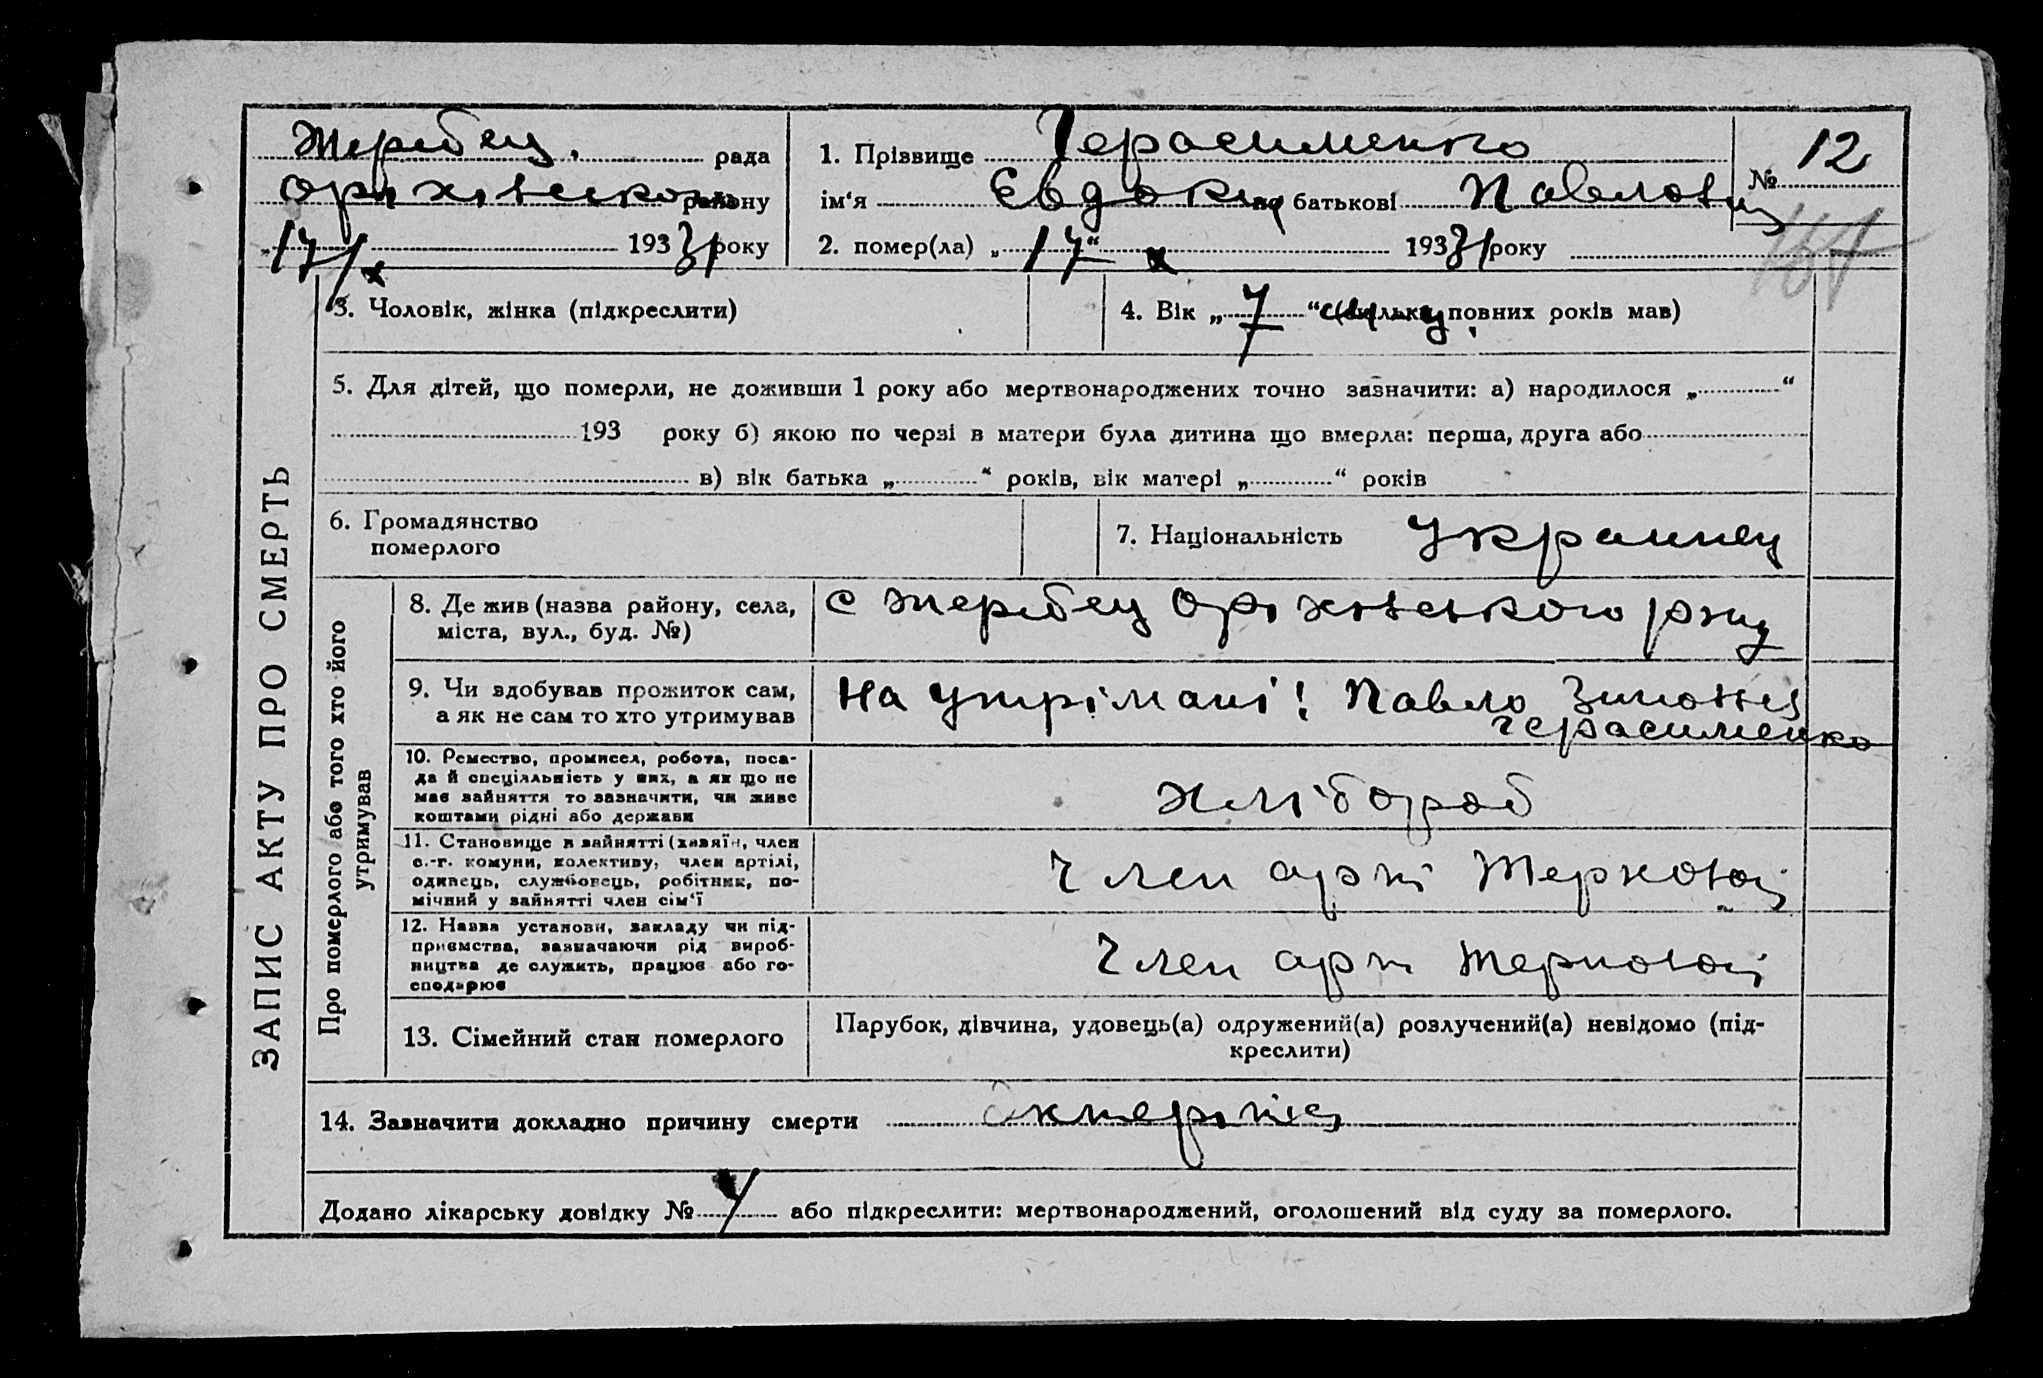 Жеребец. рада
Оріхівського району
17/х 1933 року
1. Прізвище Герасименко
ім‘я Євдокия по батькові Павловна
№ 12
2. помер(ла) „17“ х 1933 року
3. Чоловік, жінка (підкреслити)
4. Вік „7“ (скільки повних років мав)
5. Для дітей, що померли, не доживши 1 року або мертвонароджених точно зазначити: а) народилося „ “
193 року б) якою по черзі в матери була дитина що вмерла: перша, друга або
в) вік батька „ “ років, вік матері „ “ років
6. Громадянство
померлого
7. Національність Украинец
ЗАПИС АКТУ ПРО СМЕРТЬ
Про померлого або того хто його
утримував
8. Де жив (назва району, села,
міста, вул., буд. №)
с Жеребец Оріхівського р-ну
9. Чи здобував прожиток сам,
а як не сам то хто утримував
На утрімані! Павло
Герасименко
10. Ремество, промисел, робота, поса-
да й спеціяльність у них, а як що не
має зайняття то зазначити, чи живе
коштами рідні або держави
хлібороб
11. Становище в зайнятті (хазяїн, член
с.-г. комуни, колективу, член артілі,
одинець, службовець, робітник, по-
мічний у зайнятті член сім‘ї
Член арті
12. Назва установи, закладу чи під-
приємства, зазначаючи рід вироб-
ництва де служить, працює або го-
сподарює
Член арті
13. Сімейний стан померлого
Парубок, дівчина, удовець(а) одружений(а) розлучений(а) невідомо (під-
креслити)
14. Зазначити докладно причину смерти
Додано лікарську довідку № або підкреслити: мертвонароджений, оголошений від суду за померлого.